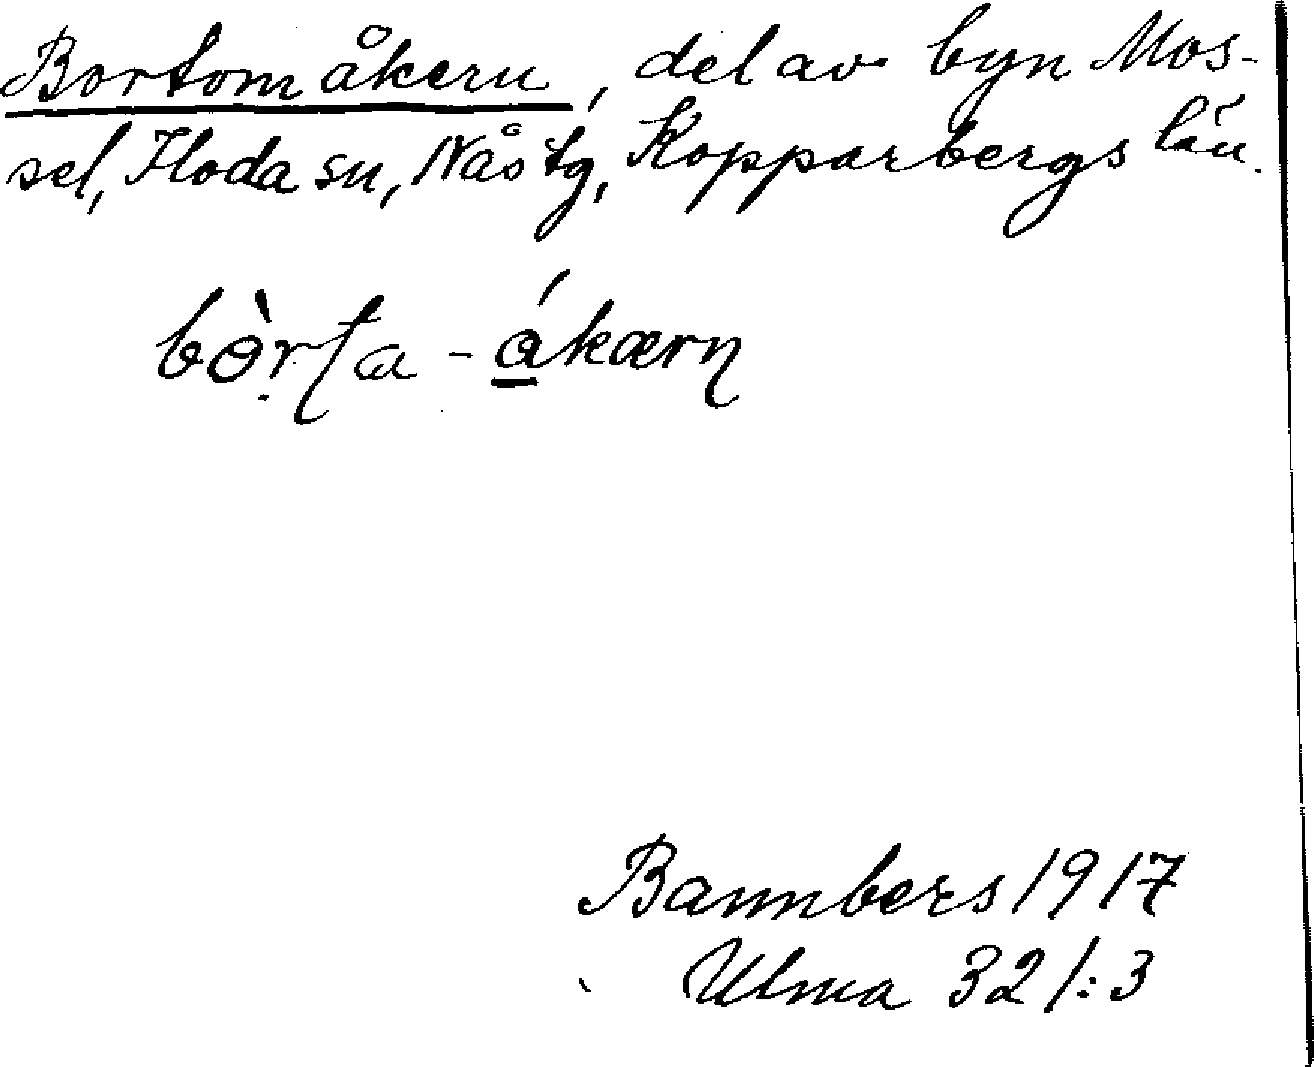 Bortom åkern, del av byn Mos-
sel, Floda sn, Nås tg, Kopparbergs län.
bòrta - ákærn
Bannbers 1917
Ulma 321:3